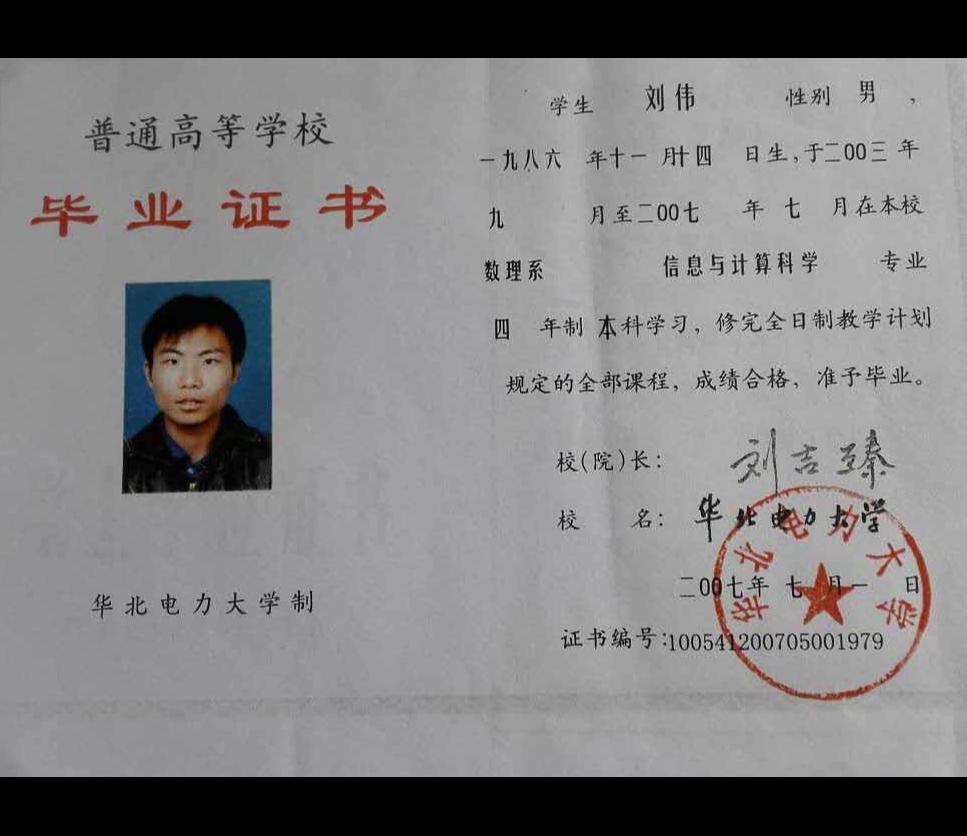 普通高等学校
毕业证书
华北电力大学制
学生 刘伟 性别 男,
一九八六 年十一 月十四 日生,于二00三 年
九 月至二00七 年 七 月在本校
数理系 信息与计算科学 专业
四 年制 本科学习,修完全日制教学计划
规定的全部课程,成绩合格,准予毕业。
校(院)长: 刘吉臻
校 名: 华北电力大学
二00七年 七 月一 日
证书编号:100541200705001979
华北电力大学